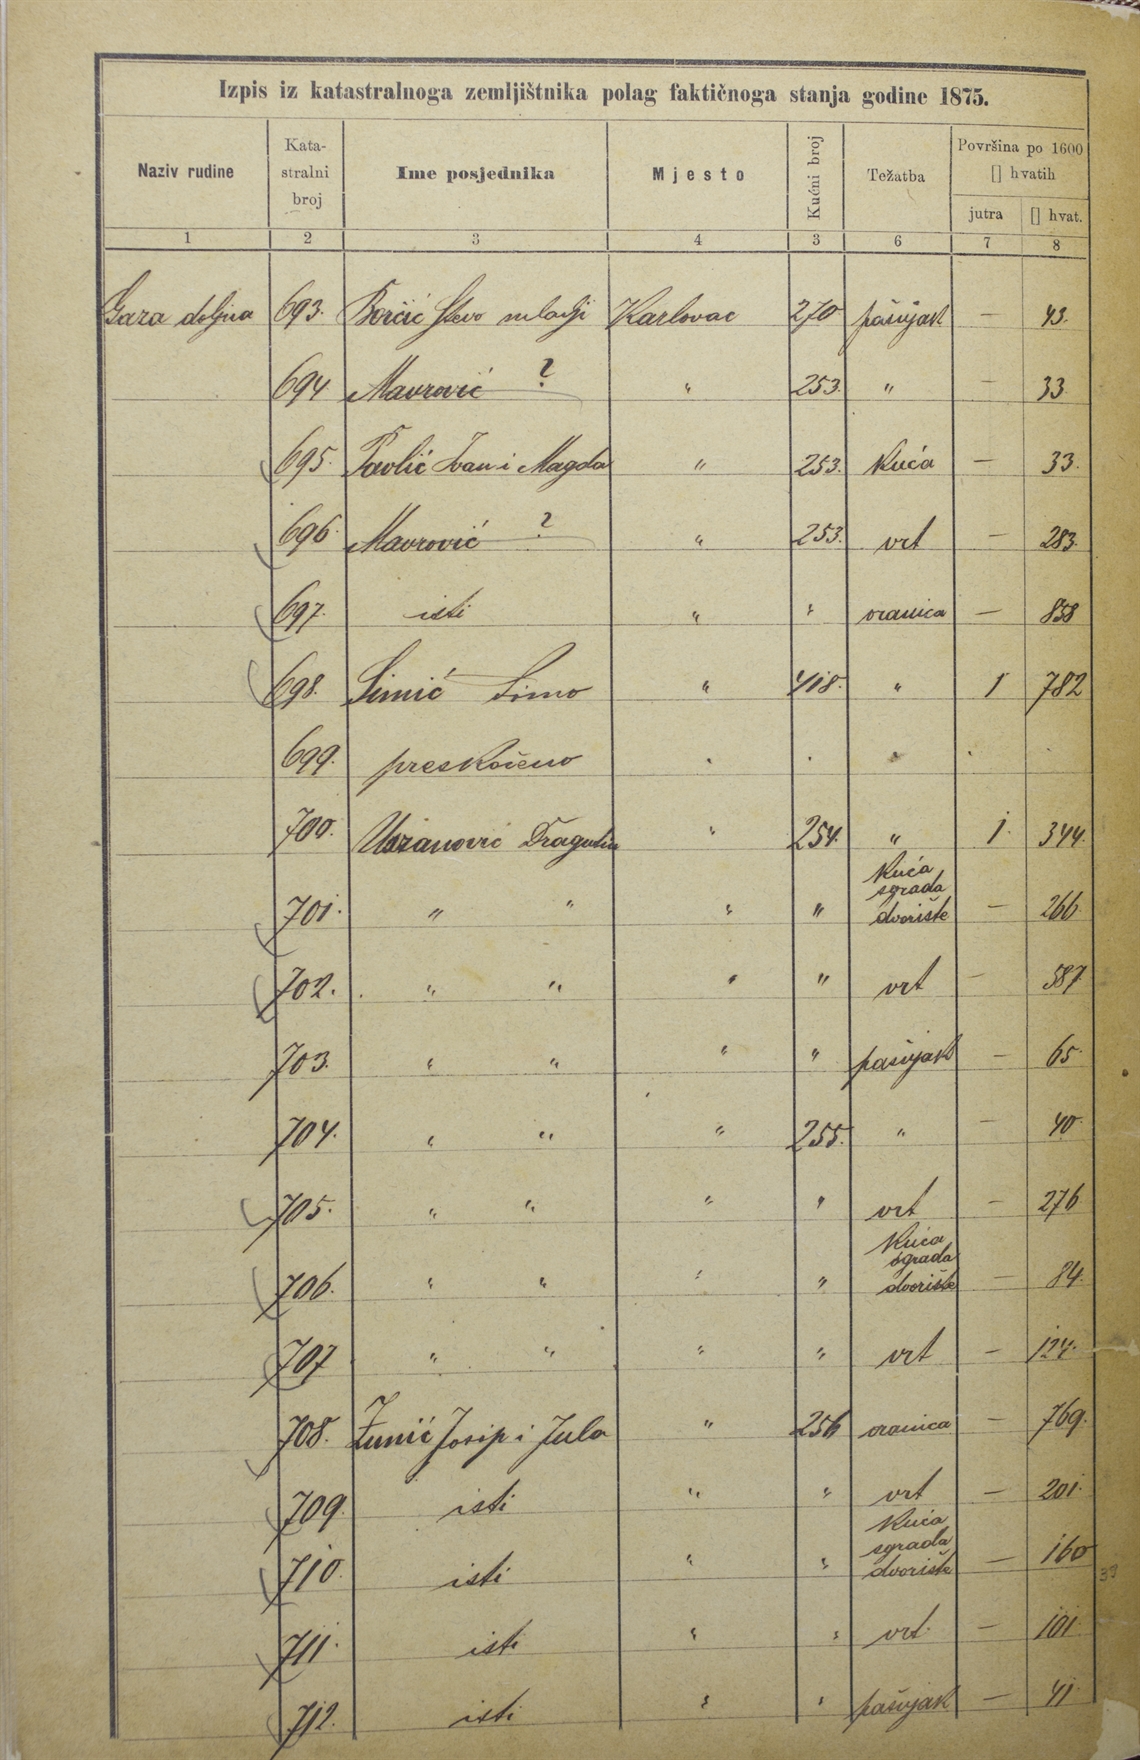 Izpis iz katastralnoga zemljištnika polag faktičnoga stanja godine 1875.
Naziv rudine Kata-stralni broj Ime posjednika Mjesto Kućni broj Težatba Površina po 1600 [] hvatih
jutra [] hvat.
1 2 3 4 3 6 7 8
Gaza doljna 693. Borčić Stevo mladji Karlovac 270 pašnjak — 43.
694 Mavrović ? " 253. " — 33
695. Pavlić Ivan i Magda " 253. kuća — 33.
696. Mavrović ? " 253. vrt — 283.
697. isti " " oranica — 858
698. Simić Simo " 418. " 1 782
699. preskočeno
700. Dragutin " 254. " 1. 344.
701. " " " " kuća sgrada dvorište — 266.
702. " " " " vrt — 587.
703. " " " " pašnjak — 65.
704. " " " 255. " — 40
705. " " " " vrt — 276
706. " " " " kuća sgrada dvorište — 84.
707 " " " " vrt — 124.
708. Žunić Josip i Jula " 256 oranica — 769.
709. isti " " vrt — 201.
710. isti " " kuća sgrada dvorište — 160
711. isti " " vrt. — 101.
712. isti " " pašnjak — 41